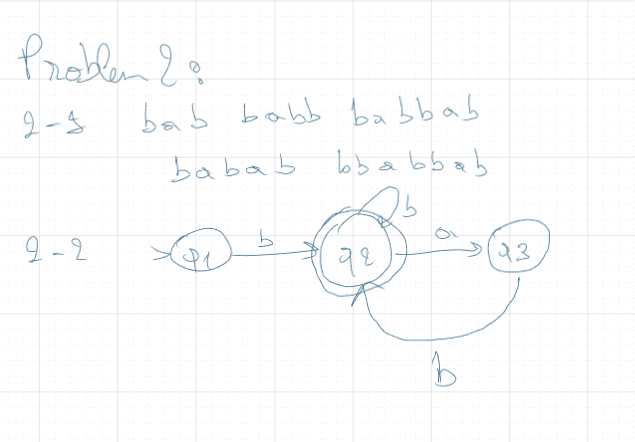 Problem 2:
2-1 bab babb babbab
babab bbabbab
b
2-2 q1 b q2 a q3
b